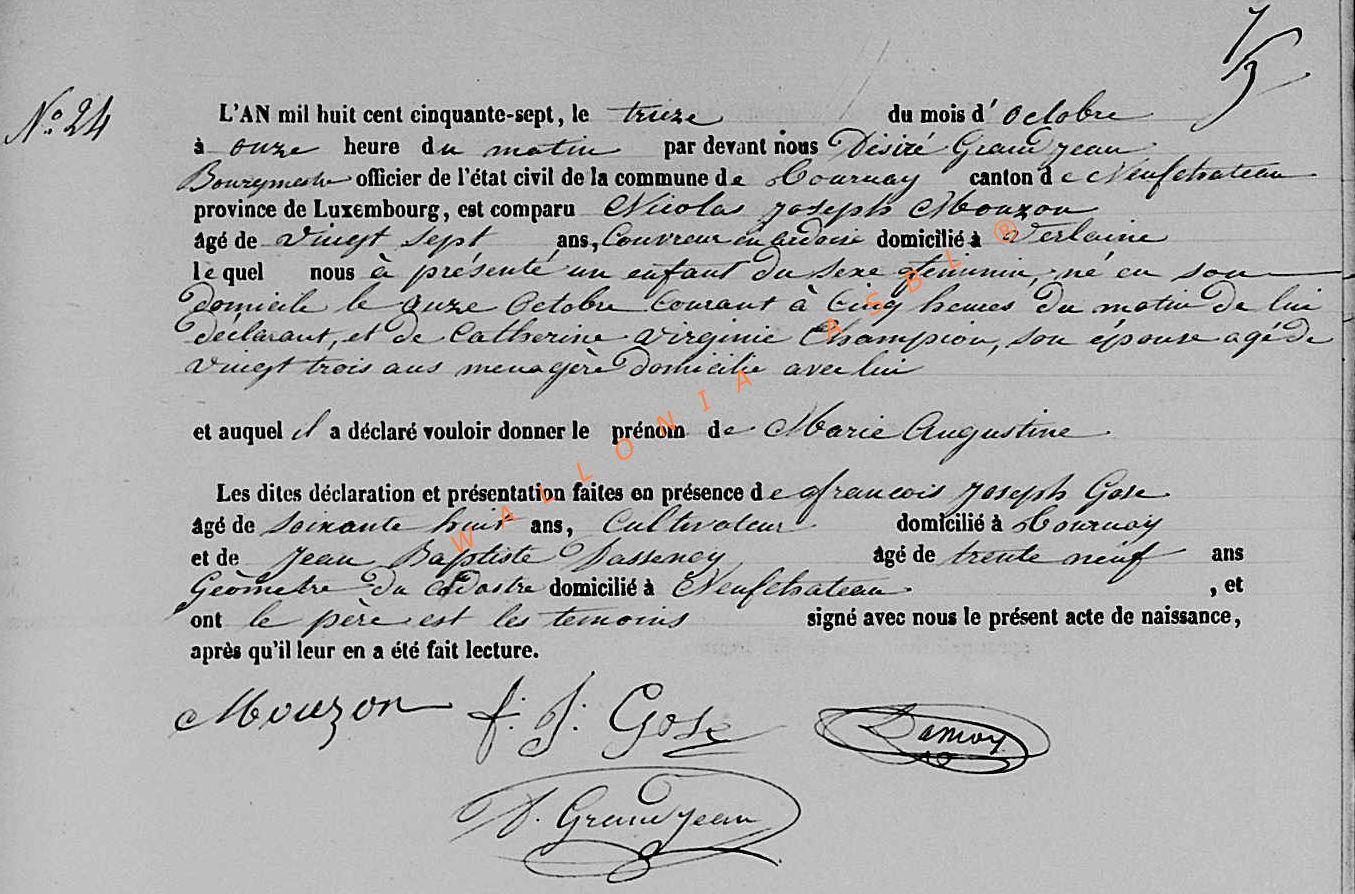 7/3
N° 24
L'AN mil huit cent cinquante-sept, le treize du mois d'octobre
à onze heure du matin par devant nous Désiré Grandjean
Bourgmestre officier de l'état civil de la commune de Tournay canton de Neufchateau
province de Luxembourg, est comparu Nicolas Joseph Mouzon
âgé de vingt sept ans, Couvreur en ardoise domicilié à Verlaine
lequel nous à présenté un enfant du sexe féminin, né en son
domicile le onze Octobre courant à cinq heures du matin de lui
déclarant, et de Catherine Virginie Champion, son épouse agé de
vingt trois ans menagère domicilié avec lui
et auquel il a déclaré vouloir donner le prénom de Marie Augustine
Les dites déclaration et présentation faites en présence de francois Joseph Gose
âgé de soixante huit ans, Cultivateur domicilié à Tournay
et de Jean Baptiste âgé de trente neuf ans
Géomètre du Cadastre domicilié à Neufchateau , et
ont le père est les temoins signé avec nous le présent acte de naissance,
après qu'il leur en a été fait lecture.
Mouzon f. J. Gose
D. Grandjean
WALLONIA ASBL ®